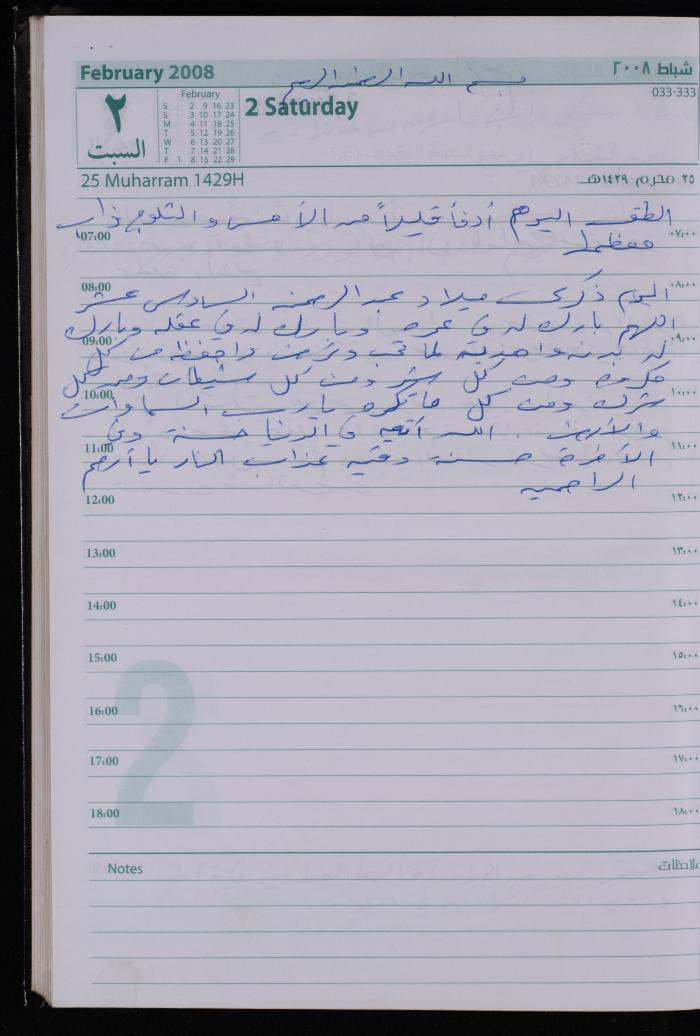 February 2008 شباط ٢٠٠٨
بسم الله الرحمن الرحيم
033-333
٢ السبت
February
S 2 9 16 23
S 3 10 17 24
M 4 11 18 25
T 5 12 19 26
W 6 13 20 27
T 7 14 21 28
F 1 8 15 22 29
2 Saturday
25 Muharram 1429H ٢٥ محرم ١٤٢٩هـ
الطقس اليوم أدفأ قليلاً من الأمس والثلوج ذاب
07:00 ٠٧:٠٠
معظمها
08:00 ٠٨:٠٠
اليوم ذكرى ميلاد عبد الرحمن السادس عشر
اللهم بارك له في عمره وبارك له في عقله وبارك
09:00 ٠٩:٠٠
له بدنه واهديه لما تحب وترضى واحفظه من كل
مكروه ومن كل شر ومن كل شيطان ومن كل
10:00 ١٠:٠٠
شرك ومن كل ما تكره يا رب السماوات
والأرض. الله آتيه في الدنيا حسنة وفي
11:00 ١١:٠٠
الآخرة حسنة وقيه عذاب النار يا أرحم
الراحمين
12:00 ١٢:٠٠
13:00 ١٣:٠٠
14:00 ١٤:٠٠
15:00 ١٥:٠٠
16:00 ١٦:٠٠
17:00 ١٧:٠٠
18:00 ١٨:٠٠
2
Notes ملاحظات